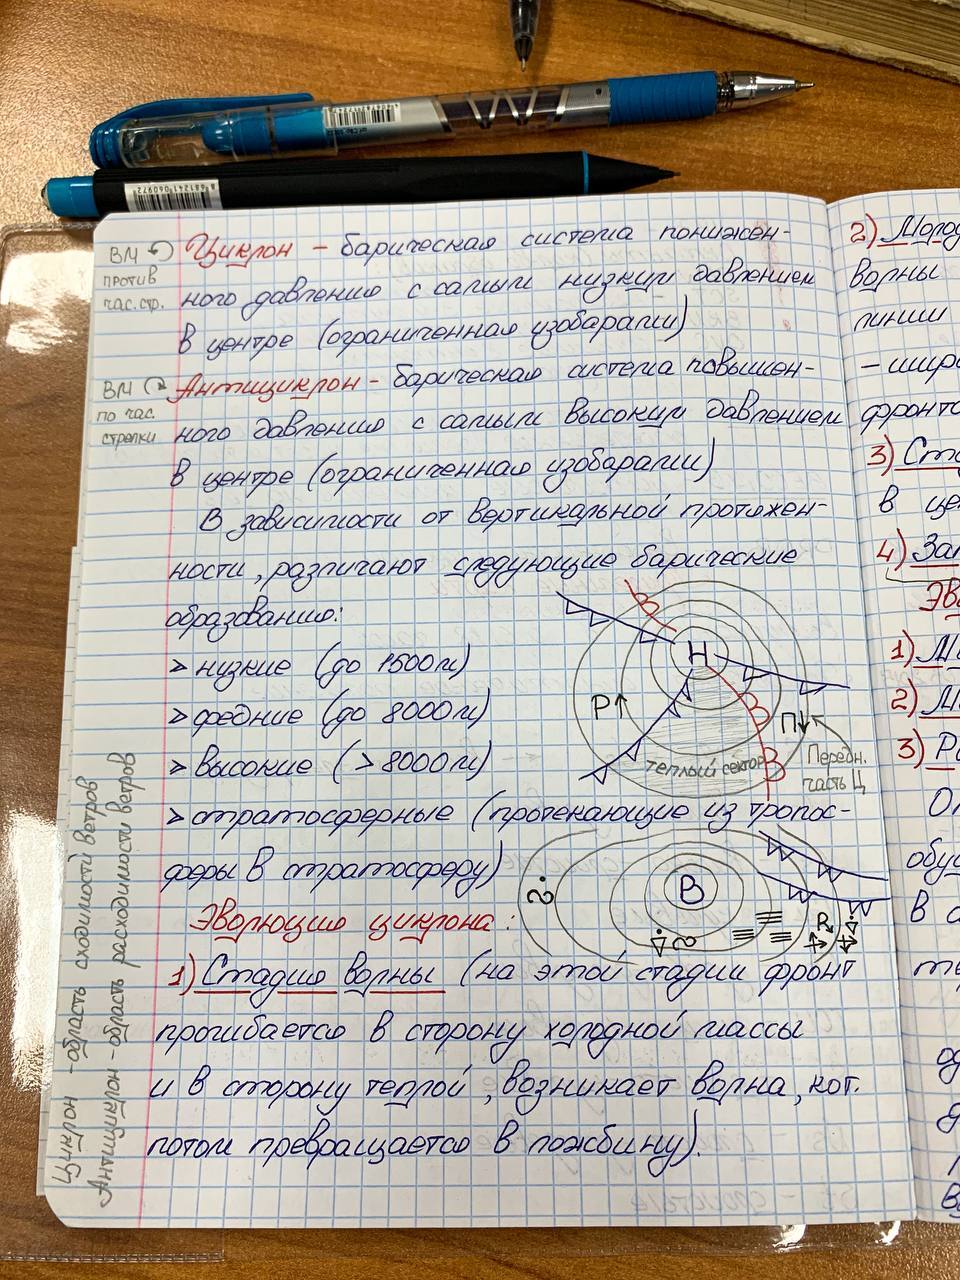 ВМ
против
час.стр.
Циклон – барическая система понижен-
ного давления с самым низким давлением
в центре (ограниченная изобарами)
ВМ
по час.
стрелки
Антициклон – барическая система повышен-
ного давления с самым высоким давлением
в центре (ограниченная изобарами)
В зависимости от вертикальной протяжен-
ности, различают следующие барические
образования:
> низкие (до 1500м)
> средние (до 8000м)
> высокие (>8000м)
> стратосферные (протекающие из тропос-
феры в стратосферу)
Н
Р↑
П↓
теплый сектор
Передн.
часть Ц
В
Эволюция циклона:
1) Стадия волны (на этой стадии фронт
прогибается в сторону холодной массы
и в сторону теплой, возникает волна, кот.
потом превращается в ложбину).
Циклон - область сходимости ветров
Антициклон - область расходимости ветров
2)
волны
линии
3)
в
4)
1)
2)
3)
В